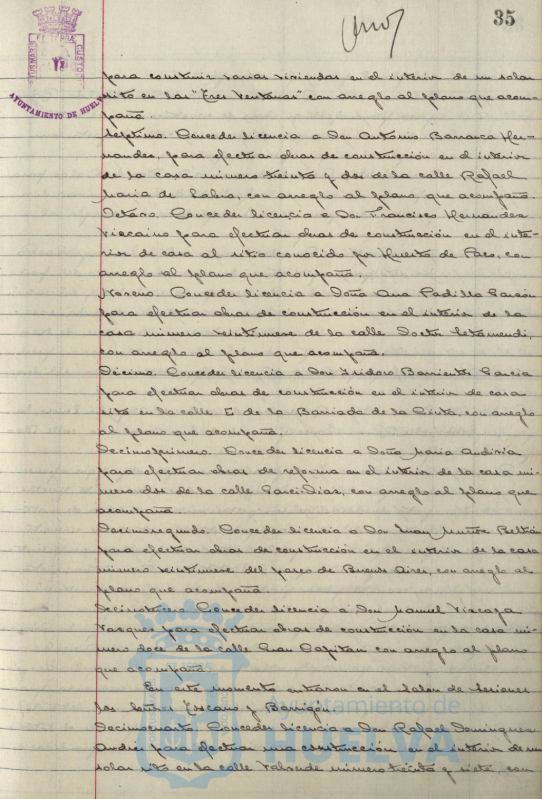 35
AYUNTAMIENTO DE HUELVA
para construir varias viviendas en el interior de un solar
sito en las "Tres Ventanas" con arreglo al plano que acom-
paña.
Septimo. Conceder licencia a Don Antonio Barranca Her-
nandez, para efectuar obras de construcción en el interior
de la casa número treinta y dos de la calle Rafael
Maria de Labra, con arreglo al plano que acompaña.
Octavo. Conceder licencia a Don Francisco Hernandez
Vizcaino para efectuar obras de construcción en el inte-
rior de casa al sitio conocido por Huerto de Paco, con
arreglo al plano que acompaña.
Noveno. Conceder licencia a Doña Ana Padilla Garzón
para efectuar obras de construcción en el interior de la
casa número veintinueve de la calle Doctor Letamendi,
con arreglo al plano que acompaña.
Décimo. Conceder licencia a Don Isidoro Barrientos Garcia
para efectuar obras de construcción en el interior de casa
sita en la calle E de la Barriada de la Cinta, con arreglo
al plano que acompaña.
Decimoprimero. Conceder licencia a Doña Maria
para efectuar obras de reforma en el interior de la casa nú-
mero dos de la calle Garci-Diaz, con arreglo al plano que
acompaña
Decimosegundo. Conceder licencia a Don Juan Muñoz Beltrán
para efectuar obras de construcción en el interior de la casa
número veintinueve del paseo de Buenos Aires, con arreglo al
plano que acompaña.
Decimotercero. Conceder licencia a Don Manuel Vizcaya
Vazquez para efectuar obras de construcción en la casa nú-
mero doce de la calle Gran Capitan con arreglo al plano
que acompaña.
En este momento entraron en el Salon de Sesiones
los Señores Escano y Barrigón.
Decimocuarto. Conceder licencia a Don Rafael Dominguez
Andres para efectuar una construcción en el interior de un
solar sito en la calle Valverde número treinta y siete, con
Ayuntamiento de
HUELVA